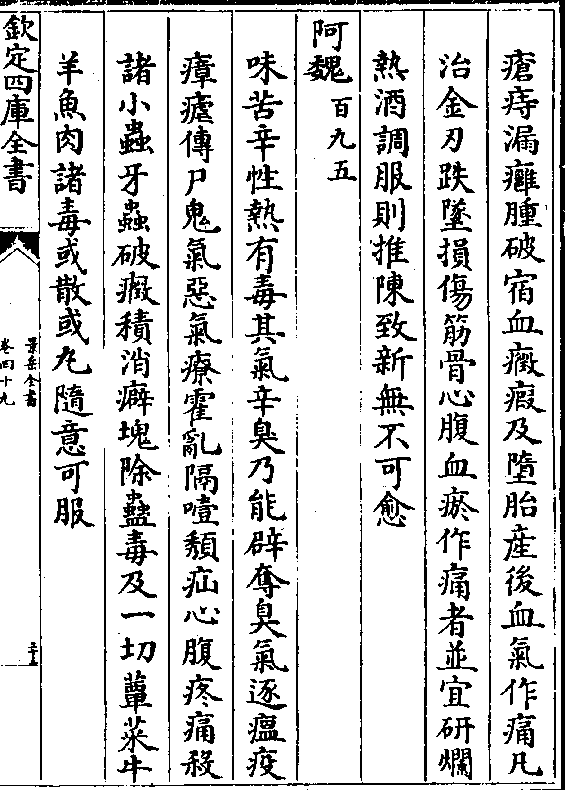 瘡痔漏癰腫破宿血癥瘕及墮胎産後血氣作痛凡
治金刃跌墜損傷筋骨心腹血瘀作痛者並宜研爛
熱酒調服則推陳致新無不可愈
阿魏百九五
味苦辛性熱有毒其氣辛臭乃能辟奪臭氣逐瘟疫
瘴瘧傳尸鬼氣惡氣療霍亂隔噎㿗疝心腹疼痛殺
諸小蟲牙蟲破癥積消癖塊除蠱毒及一切蕈菜牛
羊魚肉諸毒或散或丸隨意可服
欽定四庫全書
景岳全書
卷四十九